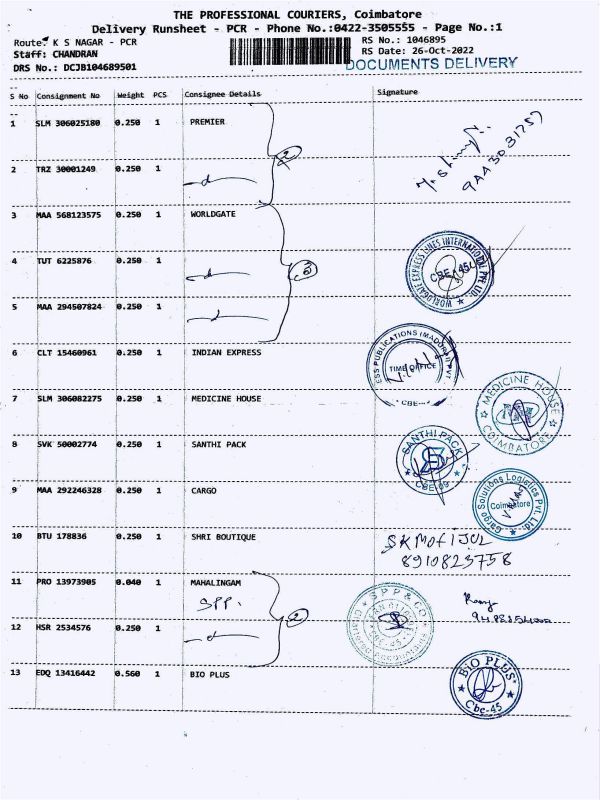 THE PROFESSIONAL COURIERS, Coimbatore
Delivery Runsheet - PCR - Phone No.:0422-3505555 - Page No.:1
Route: K S NAGAR - PCR RS No.: 1046895
Staff: CHANDRAN RS Date: 26-Oct-2022
DRS No.: DCJB104689501 DOCUMENTS DELIVERY
S No Consignment No Weight PCS Consignee Details Signature
1 SLM 306025180 0.250 1 PREMIER
2 TRZ 30001249 0.250 1
3 MAA 568123575 0.250 1 WORLDGATE
4 TUT 6225876 0.250 1
WORLDGATE EXPRESS LINES INTERNATIONAL PVT LTD.
CBE-45
5 MAA 294507824 0.250 1
6 CLT 15460961 0.250 1 INDIAN EXPRESS
TIME OFFICE
7 SLM 306082275 0.250 1 MEDICINE HOUSE
MEDICINE HOUSE
COIMBATORE
8 SVK 50002774 0.250 1 SANTHI PACK
SANTHI PACK
CBE-09
9 MAA 292246328 0.250 1 CARGO
Cargo Solutions Logistics Pvt. Ltd.
Coimbatore
10 BTU 178836 0.250 1 SHRI BOUTIQUE
SK Mofijul
8910823758
11 PRO 13973905 0.040 1 MAHALINGAM
SPP.
SPP & CO
12 HSR 2534576 0.250 1
2
13 EDQ 13416442 0.560 1 BIO PLUS
BIO PLUS
Cbe-45